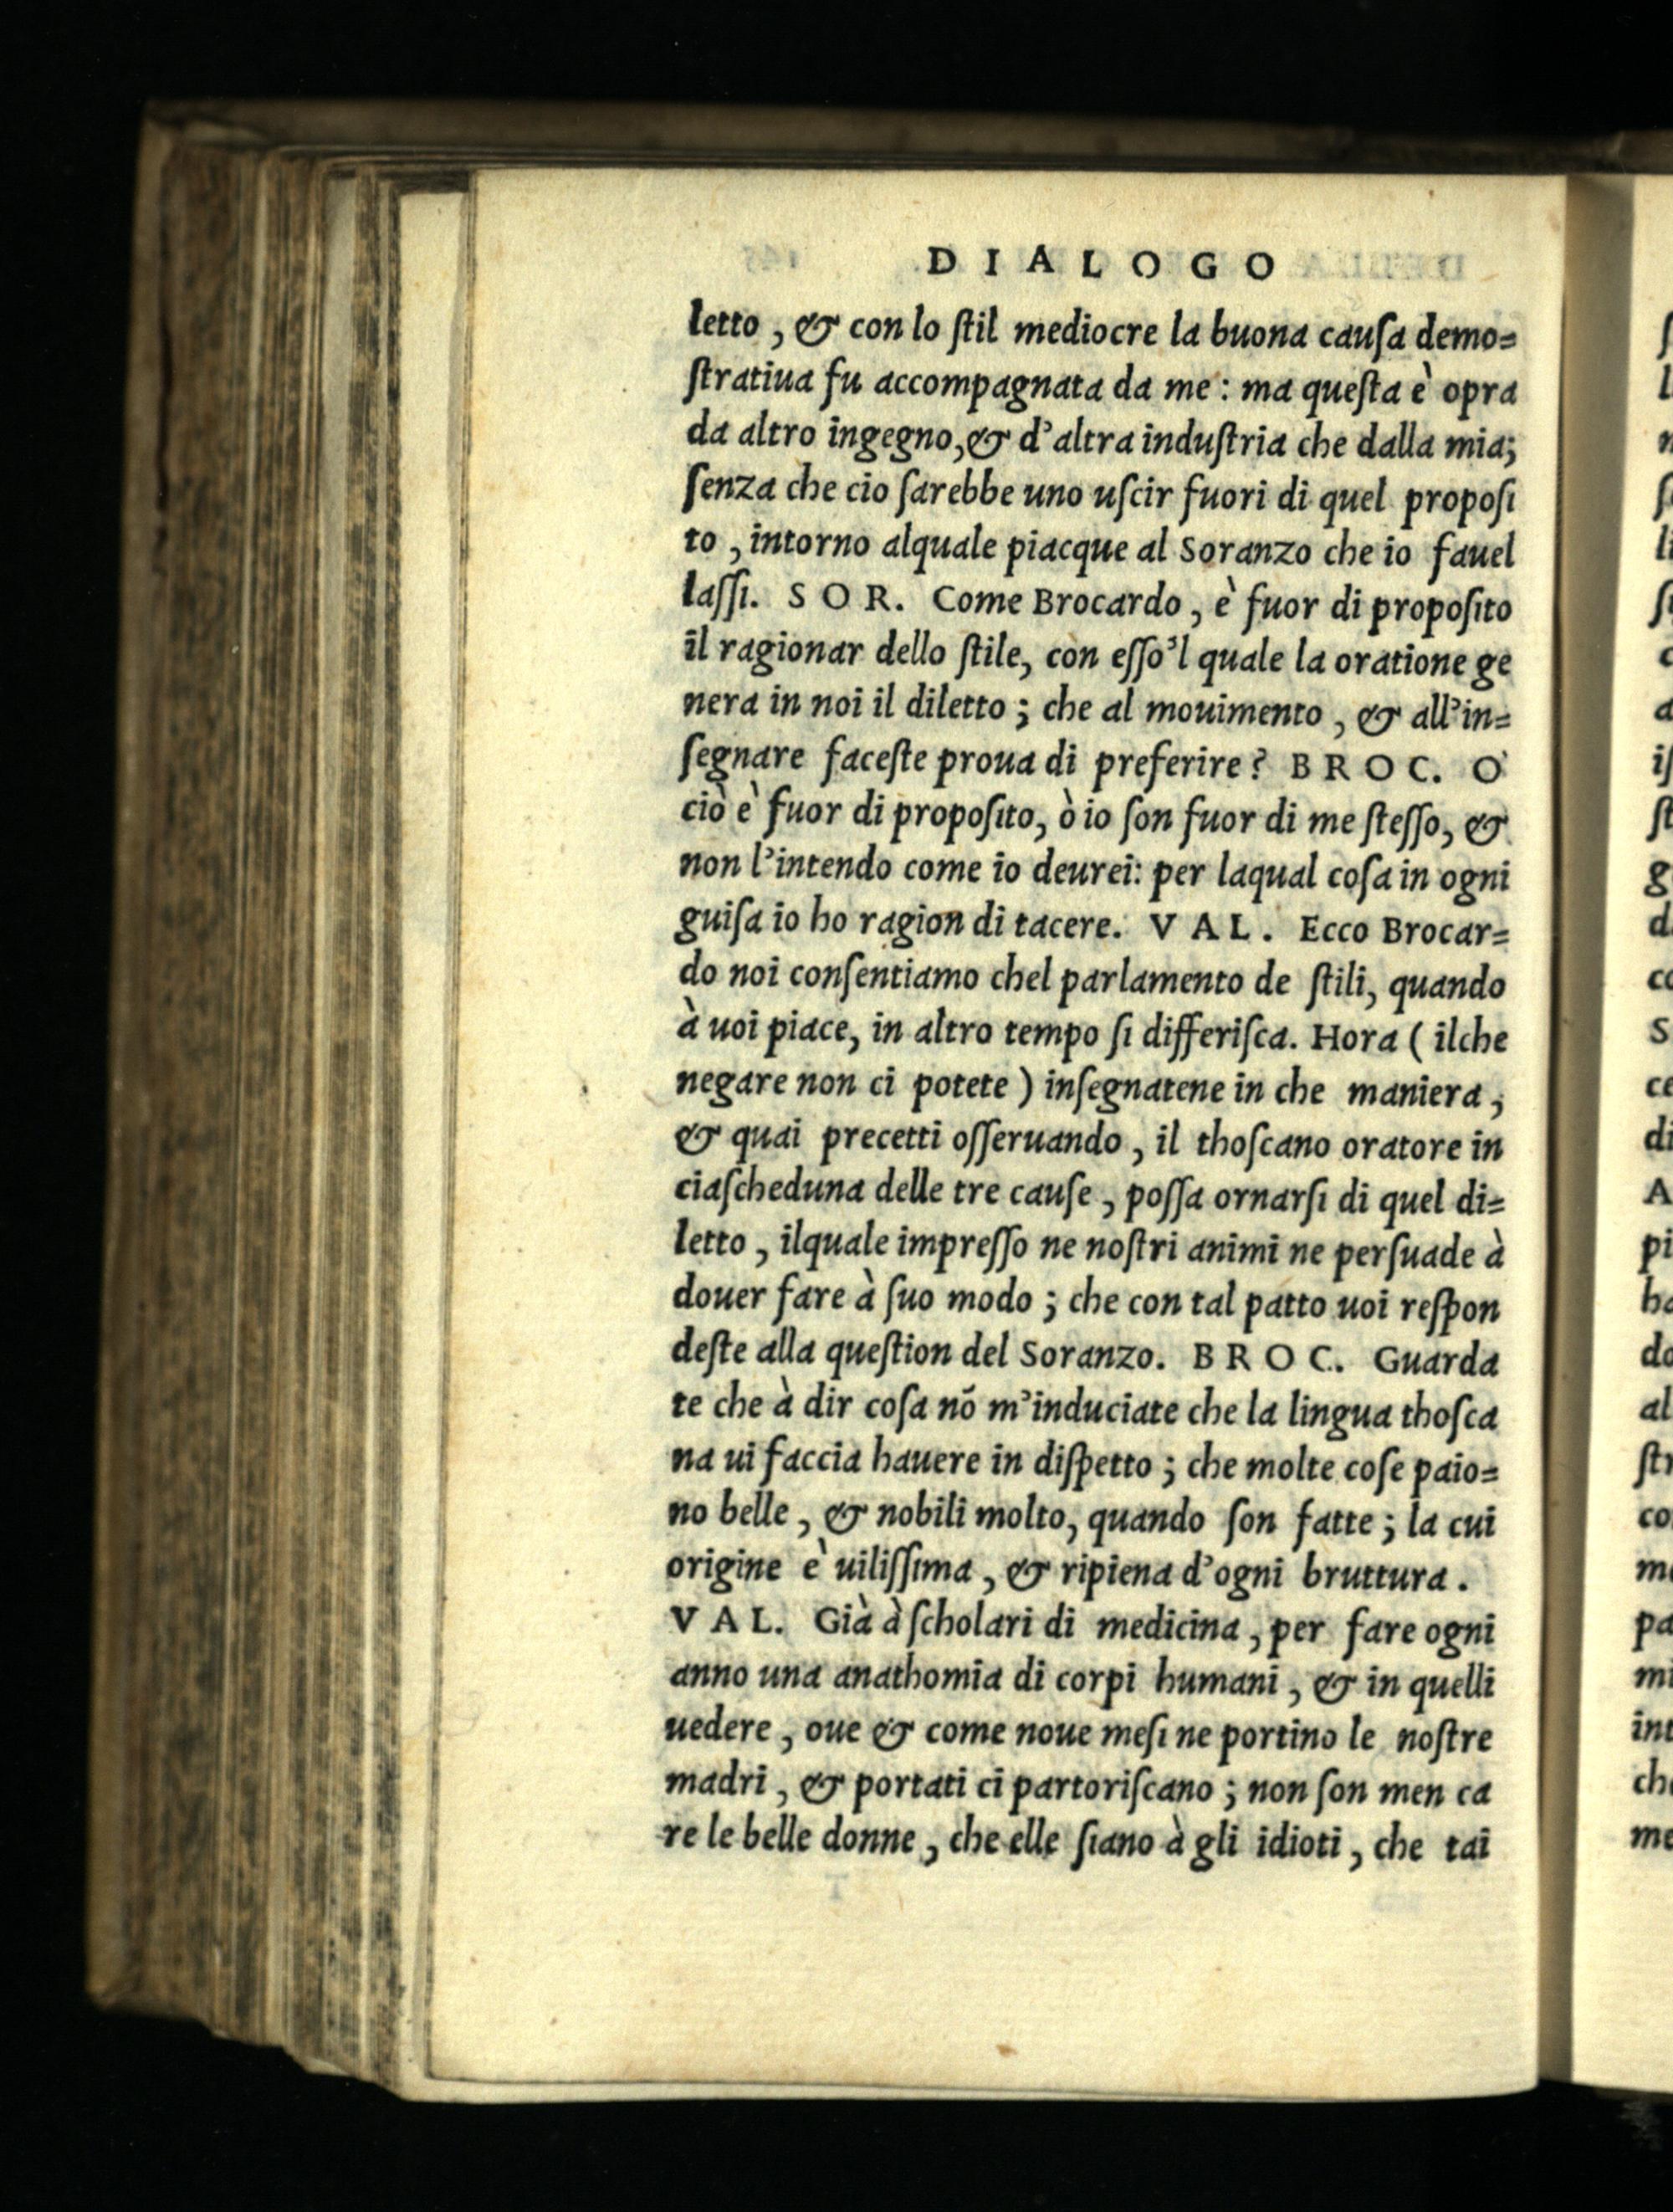 DIALOGO
letto, & con lo ſtil mediocre la buona cauſa demo=
ſtratiua fu accompagnata da me: ma queſta è opra
da altro ingegno, & d'altra induſtria che dalla mia;
ſenza che cio ſarebbe uno uſcir fuori di quel propoſi
to, intorno alquale piacque al Soranzo che io fauel
laſſi. SOR. Come Brocardo, è fuor di propoſito
il ragionar dello ſtile, con eſſo'l quale la oratione ge
nera in noi il diletto; che al mouimento, & all'in=
ſegnare faceſte proua di preferire? BROC. O'
ciò è fuor di propoſito, ò io ſon fuor di me ſteſſo, &
non l'intendo come io deurei: per laqual coſa in ogni
guiſa io ho ragion di tacere. VAL. Ecco Brocar=
do noi conſentiamo chel parlamento de ſtili, quando
à uoi piace, in altro tempo ſi differiſca. Hora ( ilche
negare non ci potete ) inſegnatene in che maniera,
& quai precetti oſſeruando, il thoſcano oratore in
ciaſcheduna delle tre cauſe, poſſa ornarſi di quel di=
letto, ilquale impreſſo ne noſtri animi ne perſuade à
douer fare à ſuo modo; che con tal patto uoi reſpon
deſte alla queſtion del Soranzo. BROC. Guarda
te che à dir coſa nõ m'induciate che la lingua thoſca
na ui faccia hauere in diſpetto; che molte coſe paio=
no belle, & nobili molto, quando ſon fatte; la cui
origine è uiliſſima, & ripiena d'ogni bruttura.
VAL. Già à ſcholari di medicina, per fare ogni
anno una anathomia di corpi humani, & in quelli
uedere, oue & come noue meſi ne portino le noſtre
madri, & portati ci partoriſcano; non ſon men ca
re le belle donne, che elle ſiano à gli idioti, che tai